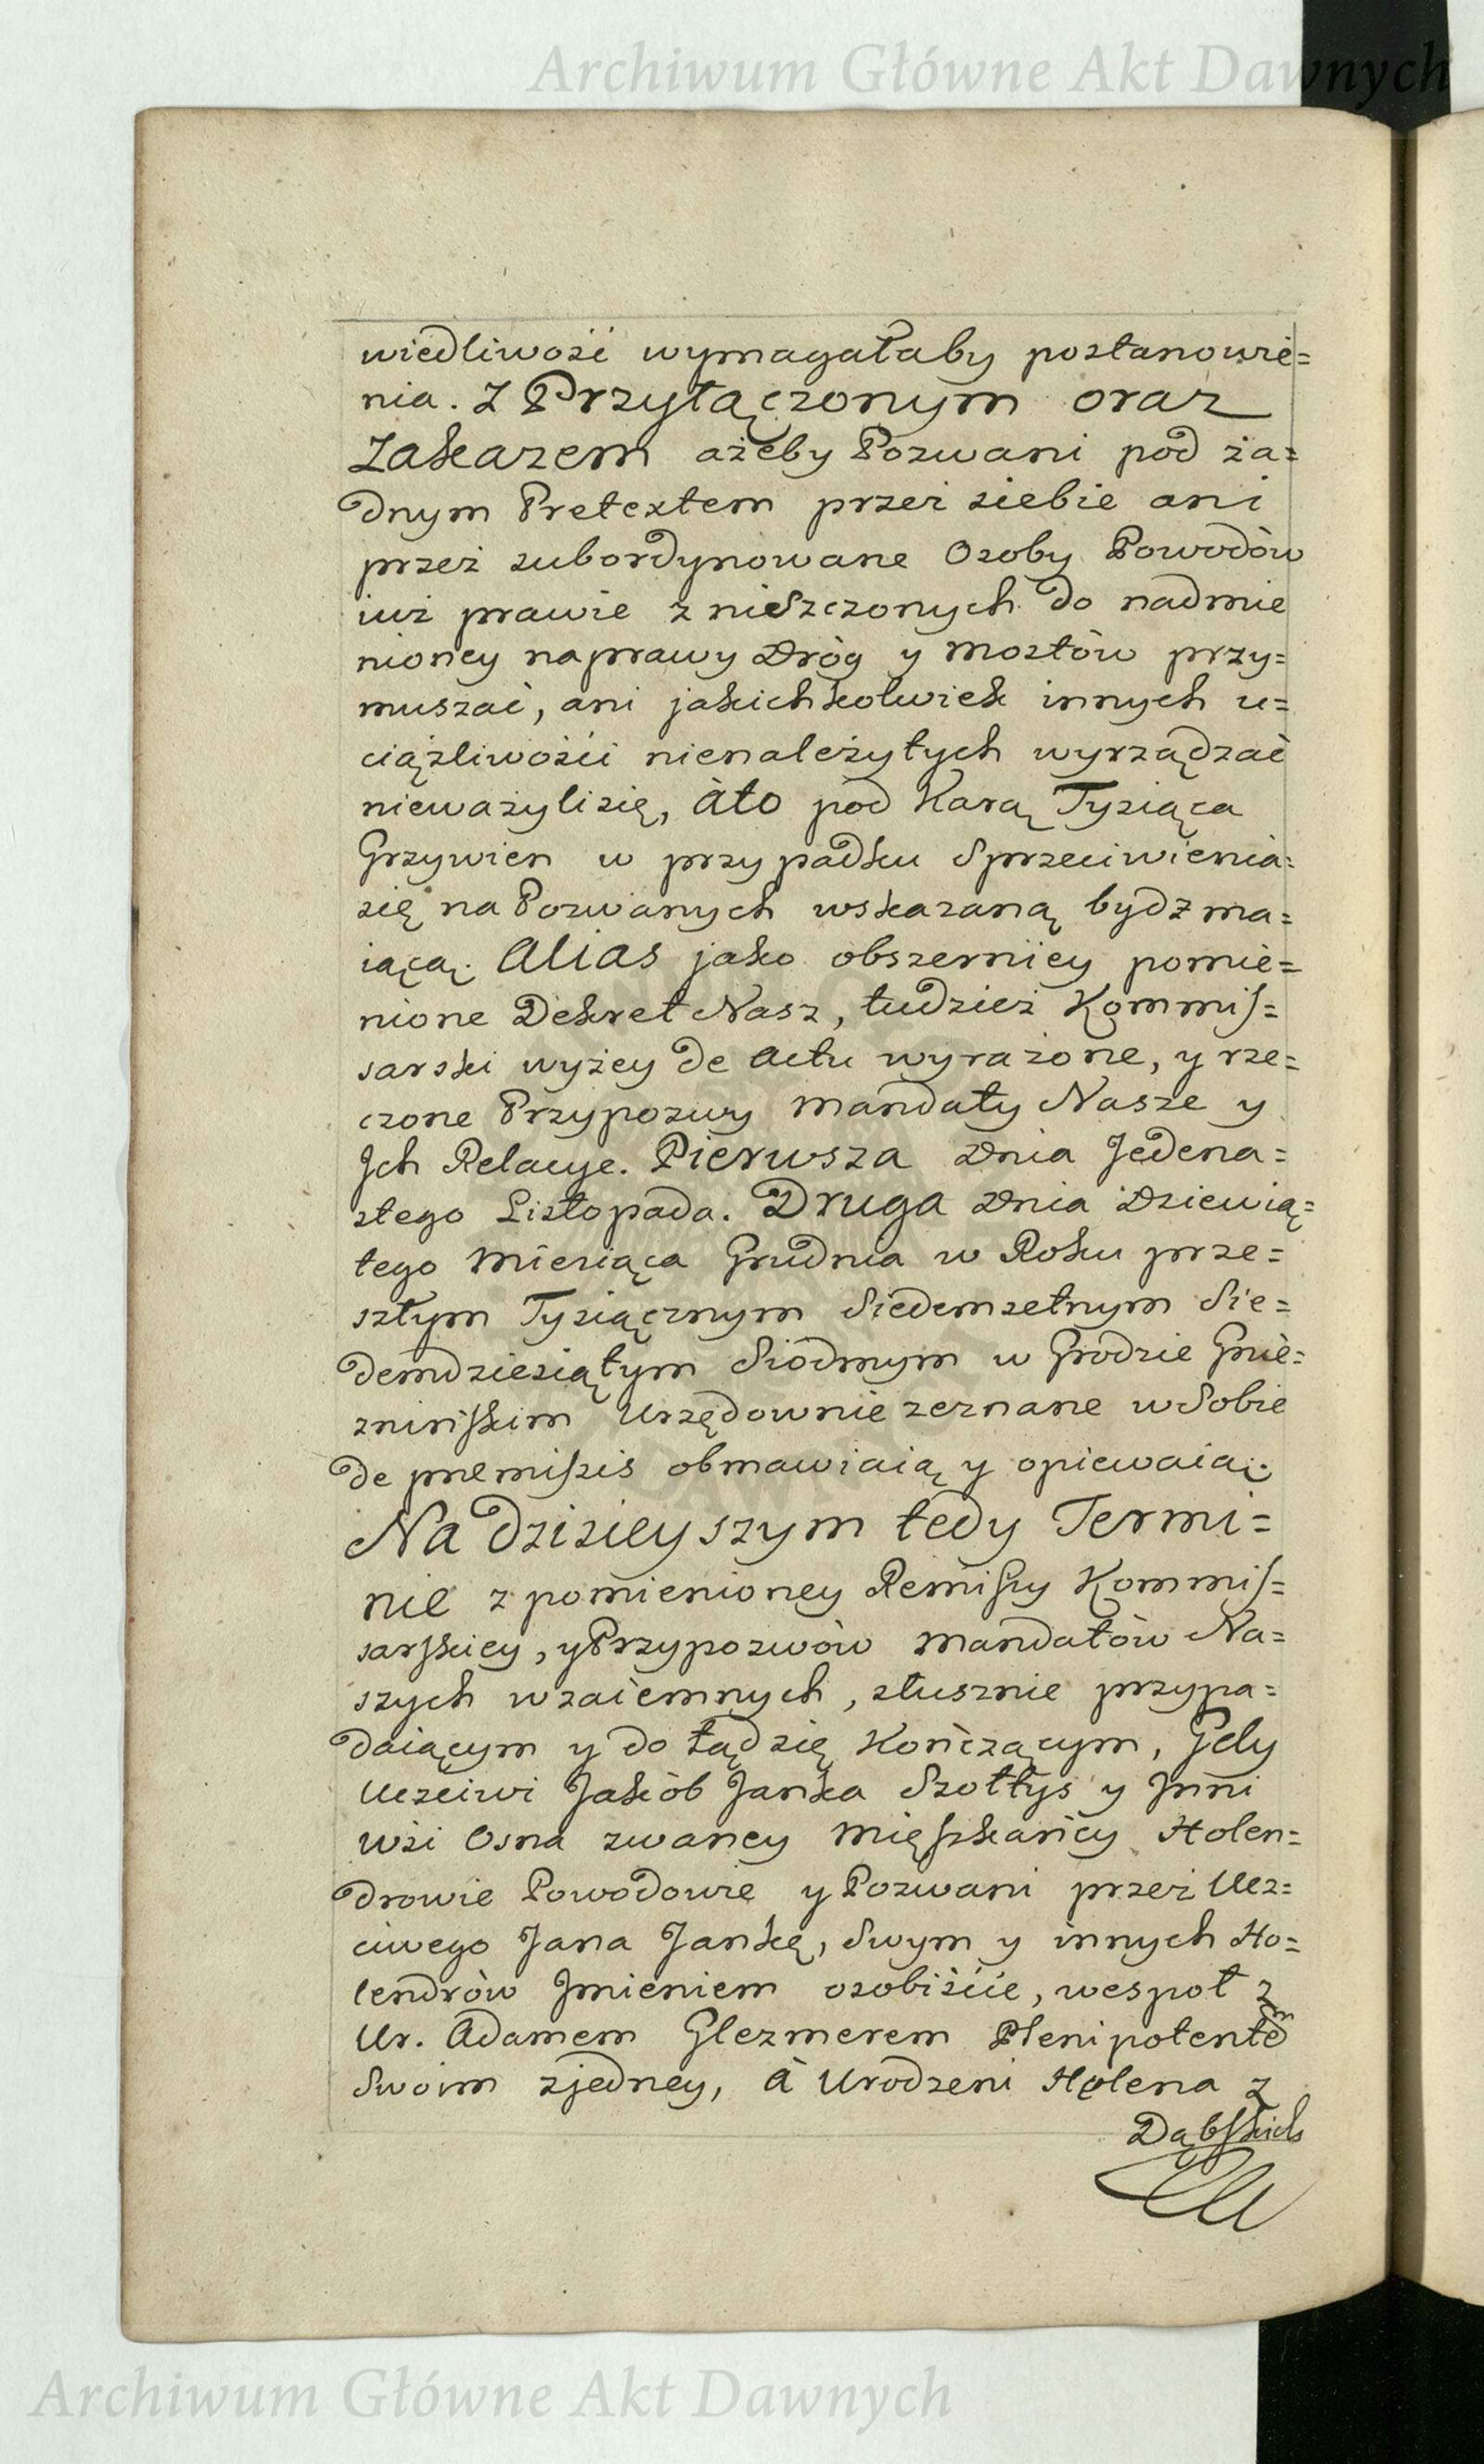 Archiwum Główne Akt Dawnych
wiedliwość wymagałaby postanowie=
nia. Z Przyłączonym oraz
Zakazem ażeby Pozwani pod ża=
dnym Pretextem przez siebie ani
przez subordynowane Osoby Powodów
iuż prawie zniszczonych do nadmie
nioney naprawy Dróg y Mostów przy=
muszać, ani jakichkolwiek innych u=
ciążliwości nienależytych wyrządzać
nieważyli się, àto pod Karą Tysiąca
Grzywien w przypadku Sprzeciwienia=
się na Pozwanych wskazaną bydz ma=
iącą. Alias jako obszerniey pomie=
nione Dekret Nasz, tudzież Kommis=
sarski wyżey de Actu wyrażone, y rze=
czone Przypozwy Mandaty Nasze y
Jch Relacye. Pierwsza Dnia Jedena=
stego Listopada. Druga Dnia Dziewią=
tego Miesiąca Grudnia w Roku prze=
szłym Tysiącznym Siedemsetnym Sie=
demdziesiątym Siódmym w Grodzie Gnie=
znińskim Urzędownie zeznane w Sobie
de premissis obmawiaią y opiewaią.
Na dzisieyszym tedy Termi=
nie z pomienioney Remissy Kommis=
sarskiey, y Przypozwów Mandatów Na=
szych wzaiemnych, słusznie przypa=
daiącym y do tąd się Kończącym, Gdy
Uczciwi Jakób Janka Szołtys y Jnni
Wsi Osna zwaney Mięszkańcy Holen=
drowie Powodowie y Pozwani przez Ucz=
ciwego Jana Jankę, Swym y innych Ho=
lendrów Jmieniem osobiście, wespoł z
Ur. Adamem Glezmerem Plenipotentem
Swoim zjedney, à Urodzeni Helena z
Dąbskich
Archiwum Główne Akt Dawnych